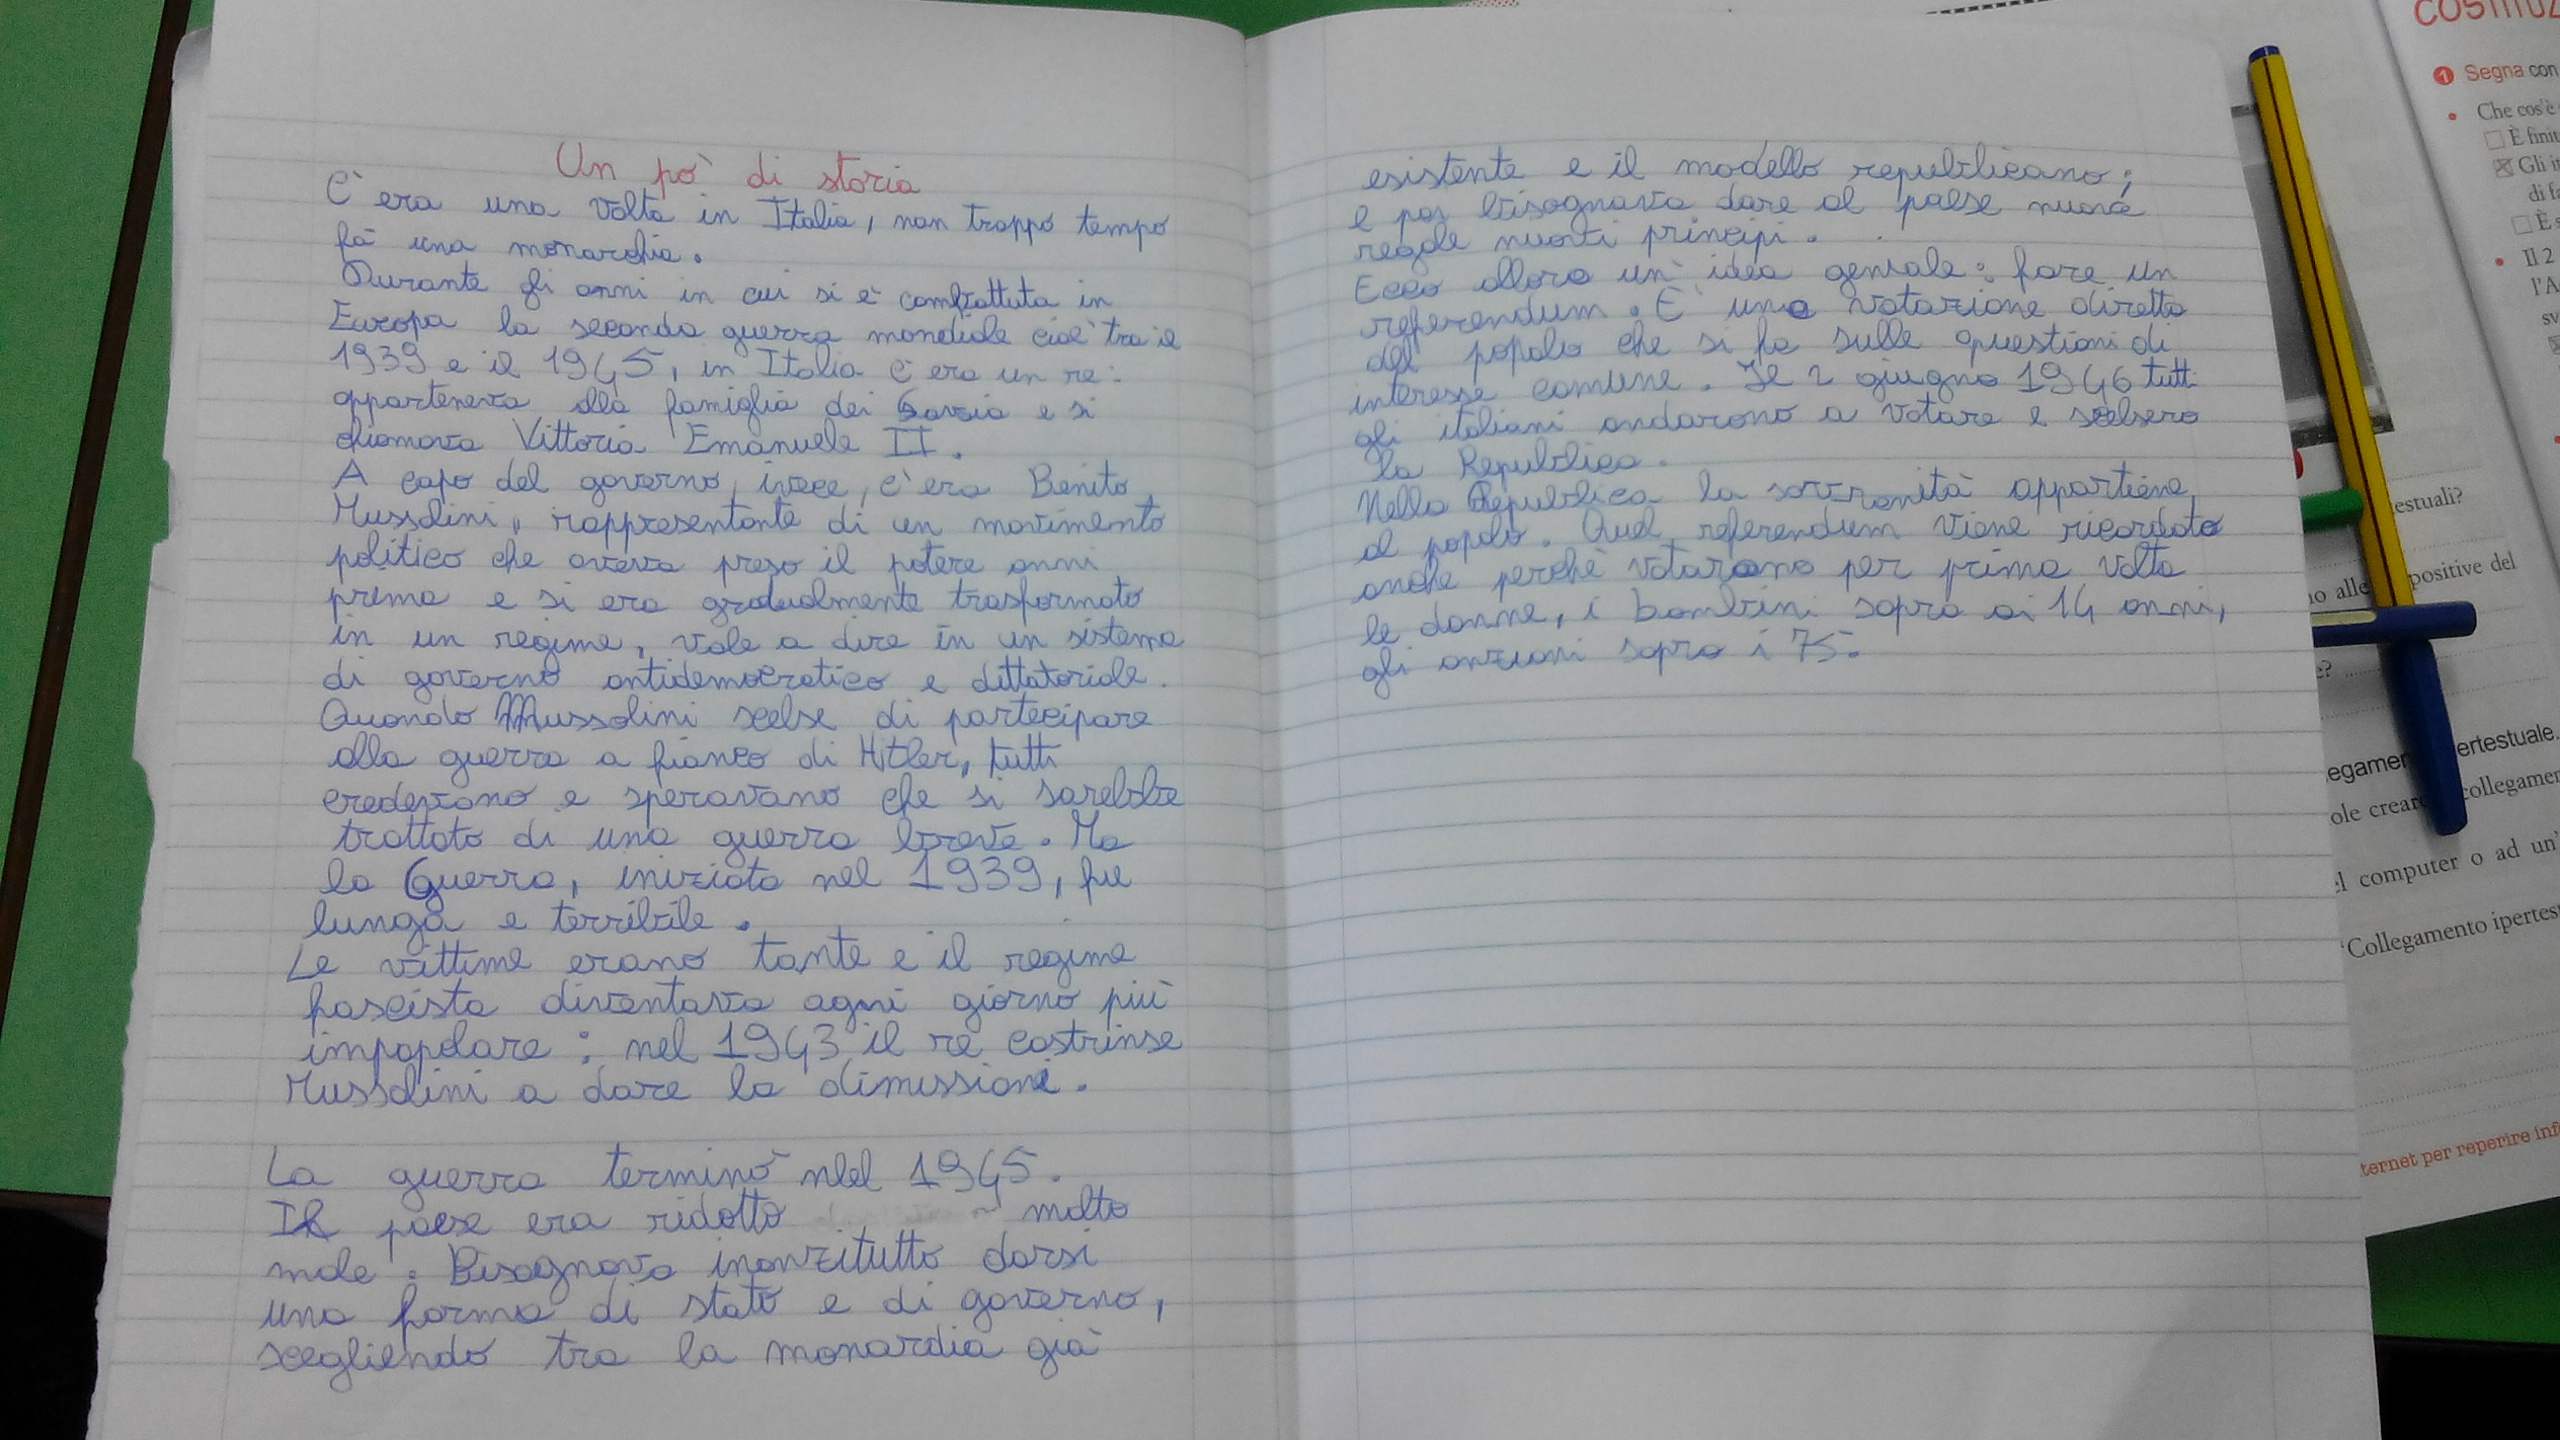 Un pò di storia
C'era una volta in Italia, non troppo tempo
fà una monarchia.
Durante gli anni in cui si è combattuta in
Europa la seconda guerra mondiale cioè tra il
1939 e il 1945, in Italia c'era un re:
apparteneva alla famiglia dei Savoia e si
chiamava Vittorio Emanuele II.
A capo del governo, ivece, c'era Benito
Mussolini, rappresentante di un movimento
politico che aveva preso il potere anni
prima e si era gradualmente trasformato
in un regime, vale a dire in un sistema
di governo antidemocratico e dittatoriale.
Quando Mussolini scelse di partecipare
alla guerra a fianco di Hitler, tutti
credevano e speravano che si sarebbe
trattato di una guerra breve. Ma
la Guerra, iniziata nel 1939, fu
lunga e terribile.
Le vittime erano tante e il regime
fascista diventava ogni giorno più
impopolare: nel 1943 il re costrinse
Mussolini a dare la dimissioni.
La guerra terminò nel 1945.
Il paese era ridotto molto
male: Bisognava inanzitutto darsi
una forma di stato e di governo,
scegliendo tra la monarchia già
esistente e il modello repubblicano;
e poi bisognava dare al paese nuove
regole nuovi principi.
Ecco allora un'idea geniale: fare un
referendum. È una votazione diretta
del popolo che si fa sulle questioni di
interesse comune. Il 2 giugno 1946 tutti
gli italiani andarono a votare e scelsero
la Repubblica.
Nella Repubblica la sovranità appartiene
al popolo. Quel referendum viene ricordato
anche perchè votarono per prima volta
le donne, i bambini sopra ai 14 anni,
gli anziani sopra i 75.
1 Segna con
Che cos'è
Gli it
di fa
Il 2
l'A
sv
testuali?
alle positive del
ertestuale.
ole creare collegamen
computer o ad un'
"Collegamento ipertest
ternet per reperire inf